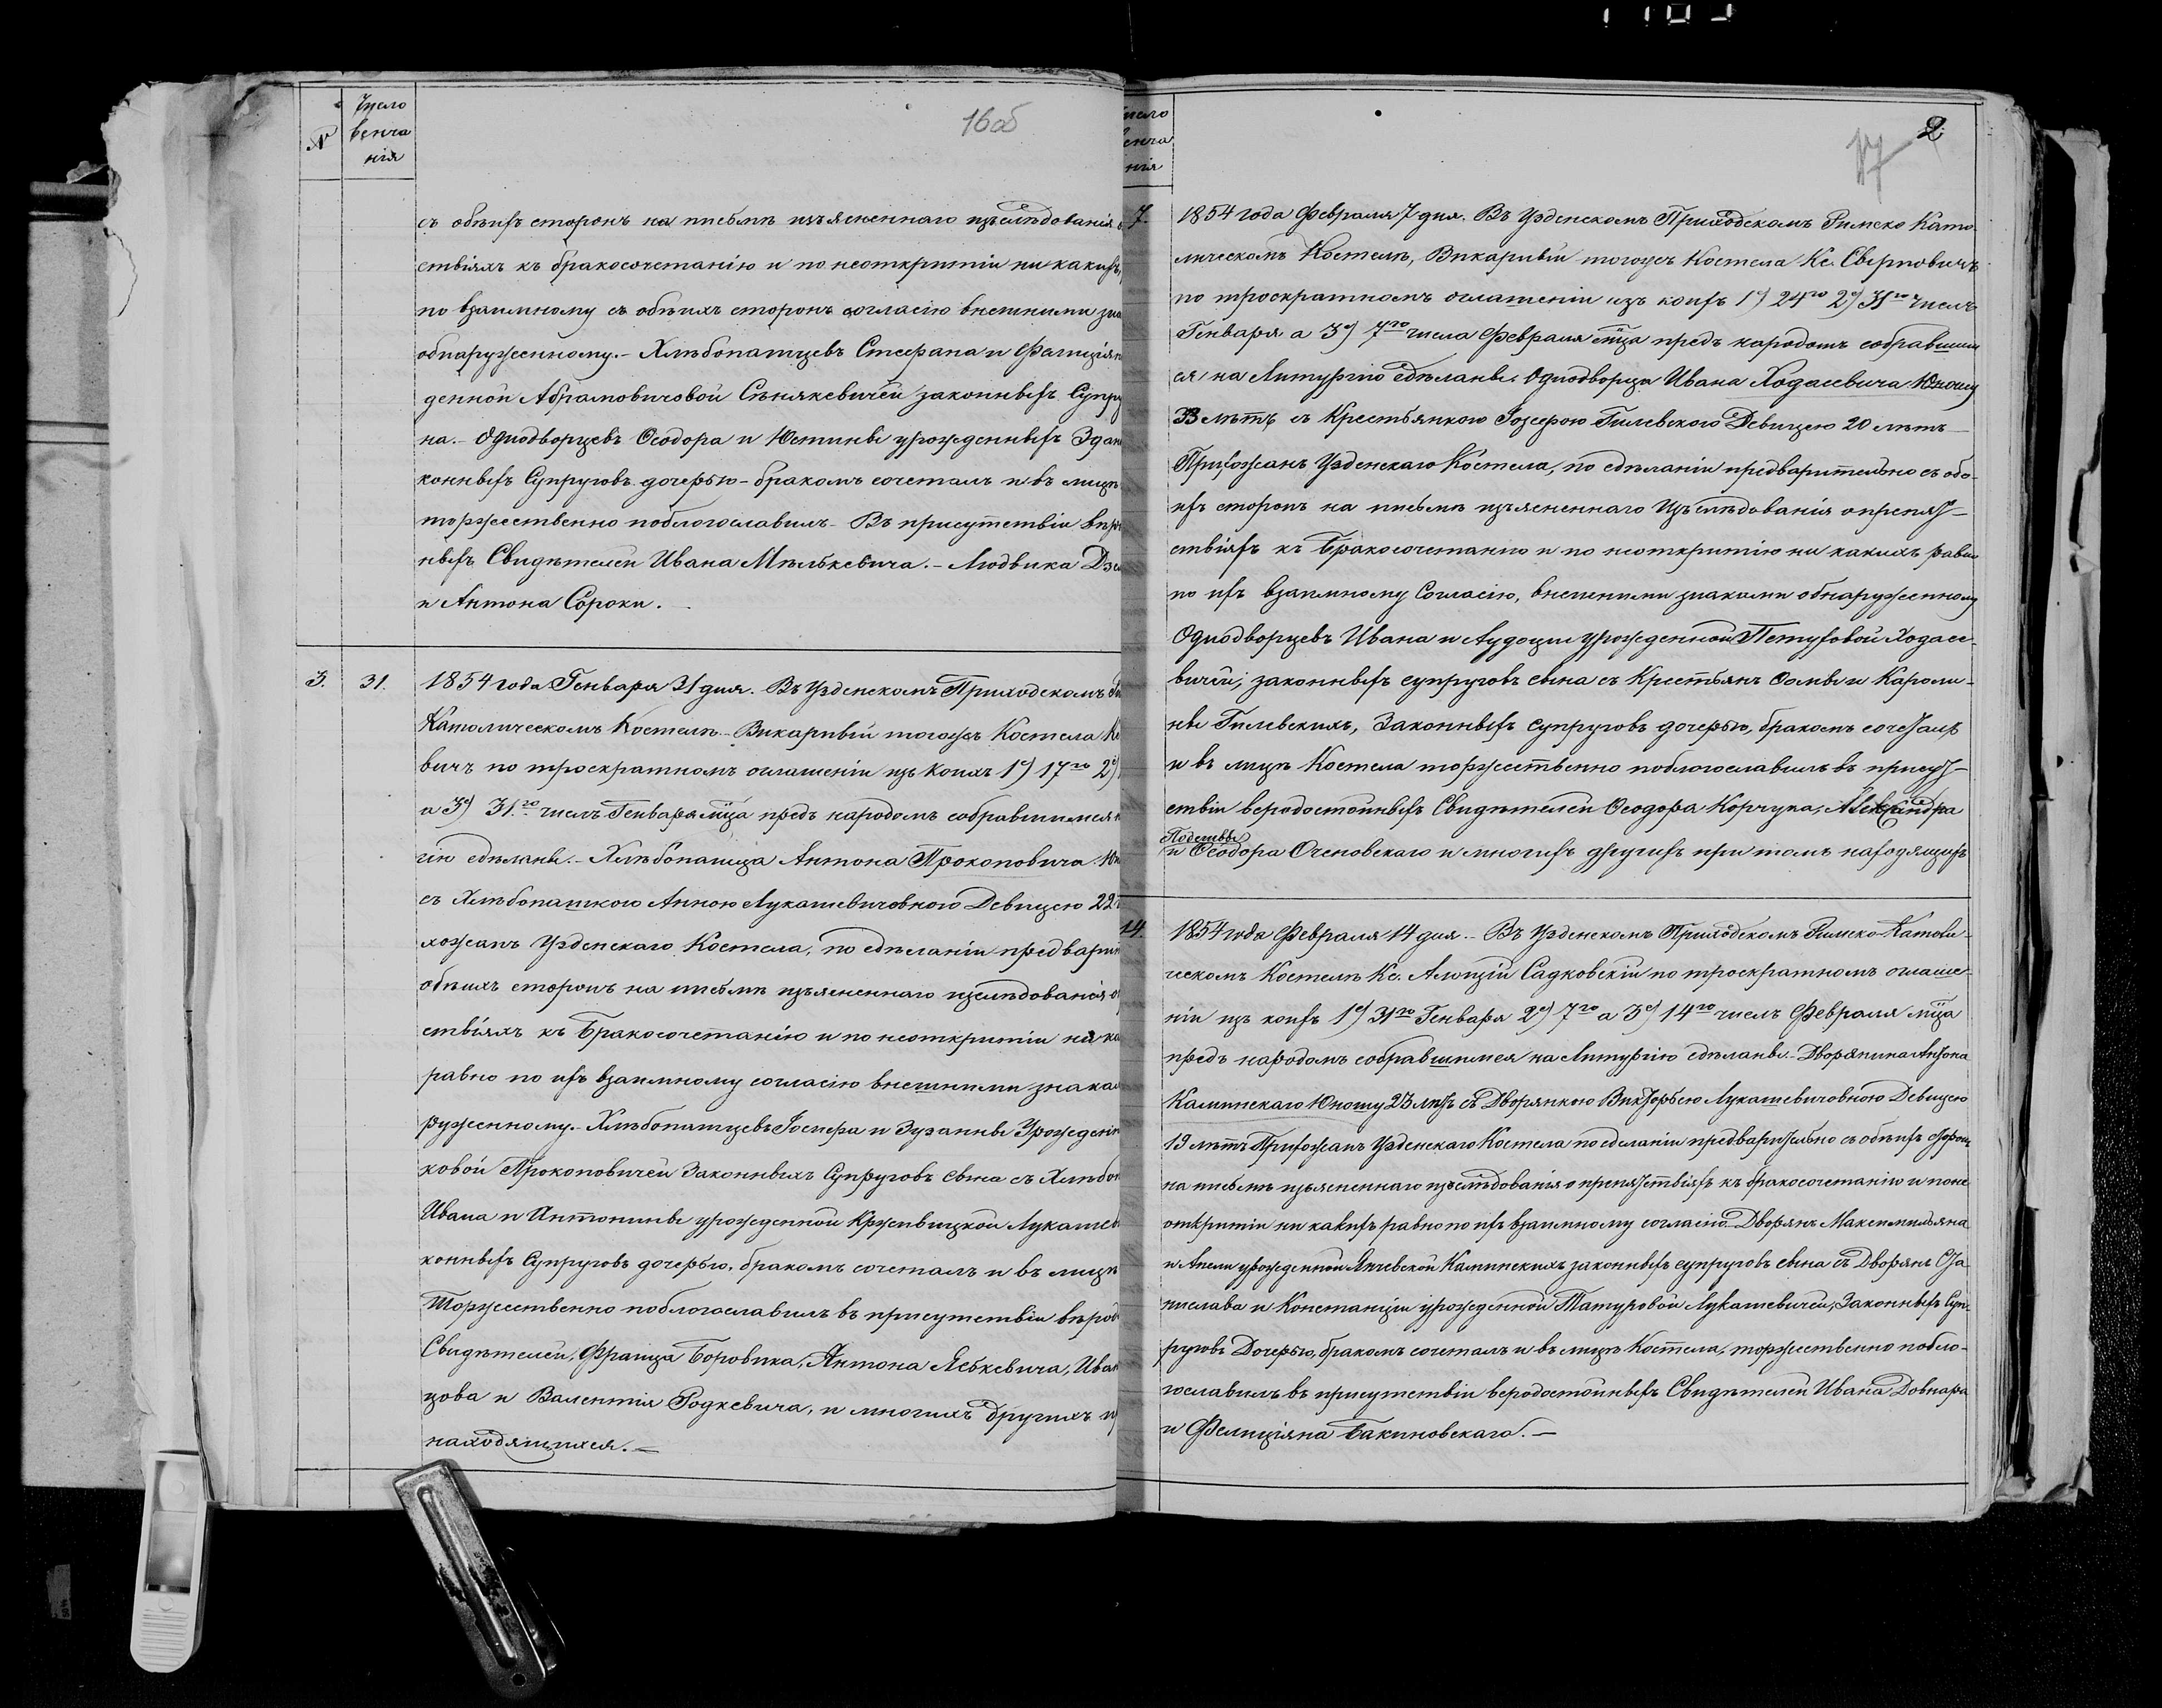 16об
№
Число
венча
нія
съ обѣихъ сторонъ на письмѣ изъясненнаго изслѣдованія
ствіяхъ къ бракосочетанію и по неоткрытіи ни какихъ,
по взаимному съ обѣихъ сторонъ согласію внешними зна
обнаруженному.- Хлѣбопашцевъ Стефана и
денной Абрамовичовой Сѣнякевичей законныхъ Супру
на.- Однодворцевъ Ѳеодора и Юстины урожденныхъ Здан
конныхъ Супруговъ дочерью - бракомъ сочеталъ и въ лицѣ
торжественно поблогославилъ - Въ присутствіи вѣро
ныхъ Свидѣтелей Ивана Мѣлькевича.- Людвика Дзе
и Антона Сороки.
3. 31. 1854 года Генваря 31 дня. Въ Узденскомъ Приходскомъ Ри
Католическомъ Костелѣ.- Викарный тогожъ Костела К
вичъ по троекратномъ оглашеніи изъ коихъ 1е) 17го 2е)
а 3е) 31.го числъ Генваря мца предъ народомъ собравшимся н
гію сдѣланы.- Хлѣбопашца Антона Прокоповича Юн
съ Хлѣбопашкою Анною Лукашевичовною Девицею 22
хожанъ Узденскаго Костела, по сдѣланіи предвари
обѣихъ сторонъ на письмѣ изъясненнаго изслѣдованія о
ствіяхъ къ Бракосочетанію и по неоткрытіи на ка
равно по ихъ взаимному согласію внешними знака
руженному.- Хлѣбопашцевъ Іосифа и Зузанны Урожден
ковой Прокоповичей Законныхъ Супруговъ сына съ Хлѣбоп
Ивана и Антонины урожденной Кржевицкой Лукашев
конныхъ Супруговъ дочерью, бракомъ сочеталъ и въ лицѣ
Торжественно поблогославилъ въ присутствіи вѣрод
Свидѣтелей, Франца Боровика, Антона Яськевича, Иван
цова и Валентія Родкевича, и многихъ другихъ п
находящихся.-
17 2
исло
енча
нія
7. 1854 года Февраля 7 дня. Въ Узденскомъ Приходскомъ Римско Като-
лическомъ Костелѣ, Викарный тогожъ Костела Кс. Свертовичъ
по троекратномъ оглашеніи изъ коихъ 1е) 24го 2е) 31го числъ
Генваря а 3е) 7го числа Февраля мца предъ народомъ собравшим
ся, на Литургію сдѣланы. Однодворца Ивана Ходасевича Юношу
33 лѣтъ съ Крестьянкою Іозефою Гилевскою Девицею 20 лѣтъ
Прихожанъ Узденскаго Костела, по сдѣланіи предварительно съ обо-
ихъ сторонъ на письмѣ изъясненнаго Изслѣдованія о препят-
ствіяхъ къ Бракосочетанію и по неоткрытію ни какихъ равно
по ихъ взаимному Согласію, внешними знаками обнаруженному
Однодворцевъ Ивана и Аудоціи урожденной Петуховой Ходасе-
вичей, законныхъ супруговъ сына съ Крестьянъ Ѳомы и Кароли-
ны Гилевскихъ, Законныхъ супруговъ дочерью, бракомъ сочеталъ
и въ лицѣ Костела торжественно поблогославилъ въ присут-
ствіи веродостойныхъ Свидѣтелей Ѳеодора Корчука, Александра
и Ѳеодора Оченовскаго и многихъ другихъ при томъ находящихъ
14. 1854 года Февраля 14 дня.- Въ Узденскомъ Приходскомъ Римско-Католи-
ческомъ Костелѣ Кс. Алоизій Садковскій по троекратномъ оглаше-
ніи изъ коихъ 1е) 31го Генваря 2е) 7го а 3е) 14го числъ Февраля мца
предъ народомъ собравшимся на Литургію сдѣланы.- Дворянина Антона
Каминскаго Юношу 23 лѣтъ съ Дворянкою Викторьею Лукашевичовною Девицею
19 лѣтъ Прихожанъ Узденскаго Костела по сделаніи предварительно съ обѣихъ сторонъ
на письмѣ изъясненнаго изслѣдованія о препятствіяхъ къ бракосочетанію и поне
открытіи ни какихъ равно по ихъ взаимному согласію Дворянъ Максимильяна
и Анели урожденной Янчевской Каминскихъ законныхъ супруговъ сына съ Дворянъ Ста-
нислава и Констанціи урожденной Татуровой Лукашевичей, Законныхъ Суп-
руговъ Дочерью, бракомъ сочеталъ и въ лицѣ Костела, торжественно побло-
гославилъ въ присутствіи веродостойныхъ Свидѣтелей Ивана Довнара
и Фелиціяна Бакиновскаго.-